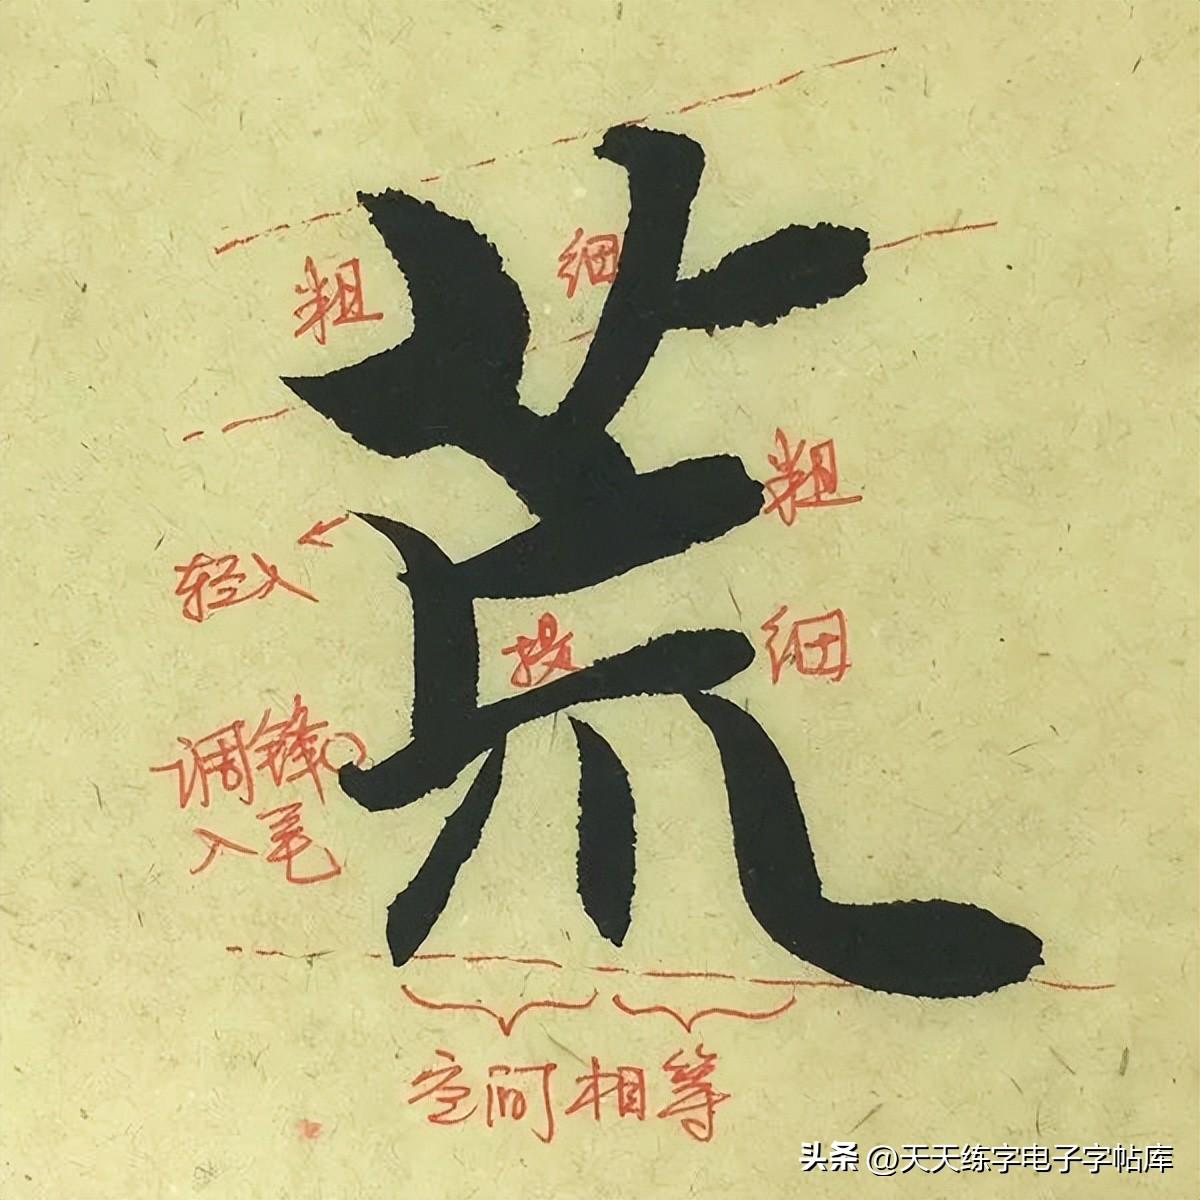 荒
粗
细
粗
轻入
提
细
调锋
入笔
空间相等
头条 @天天练字电子字帖库